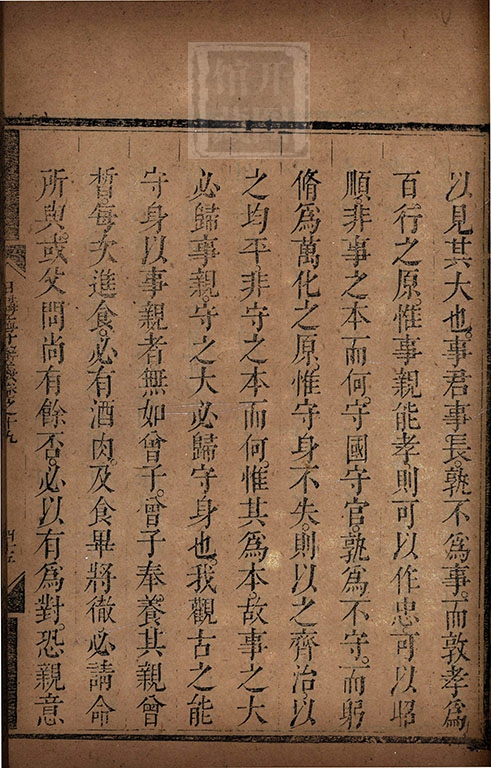 以見其大也。事君事長。孰不爲事。而敦孝爲
百行之原。惟事親能孝則可以作忠可以昭
順。非事之本而何。守國守官。孰爲不守。而躬
脩爲萬化之原。惟守身不失。則以之齊治以
之均平。非守之本而何。惟其爲本。故事之大
必歸事親。守之大必歸守身也。我觀古之能
守身以事親者無如曾子。曾子奉養其親曾
晳。每次進食。必有酒肉。及食畢將徹必請命
所與。或父問尚有餘否。必以有爲對。恐親意